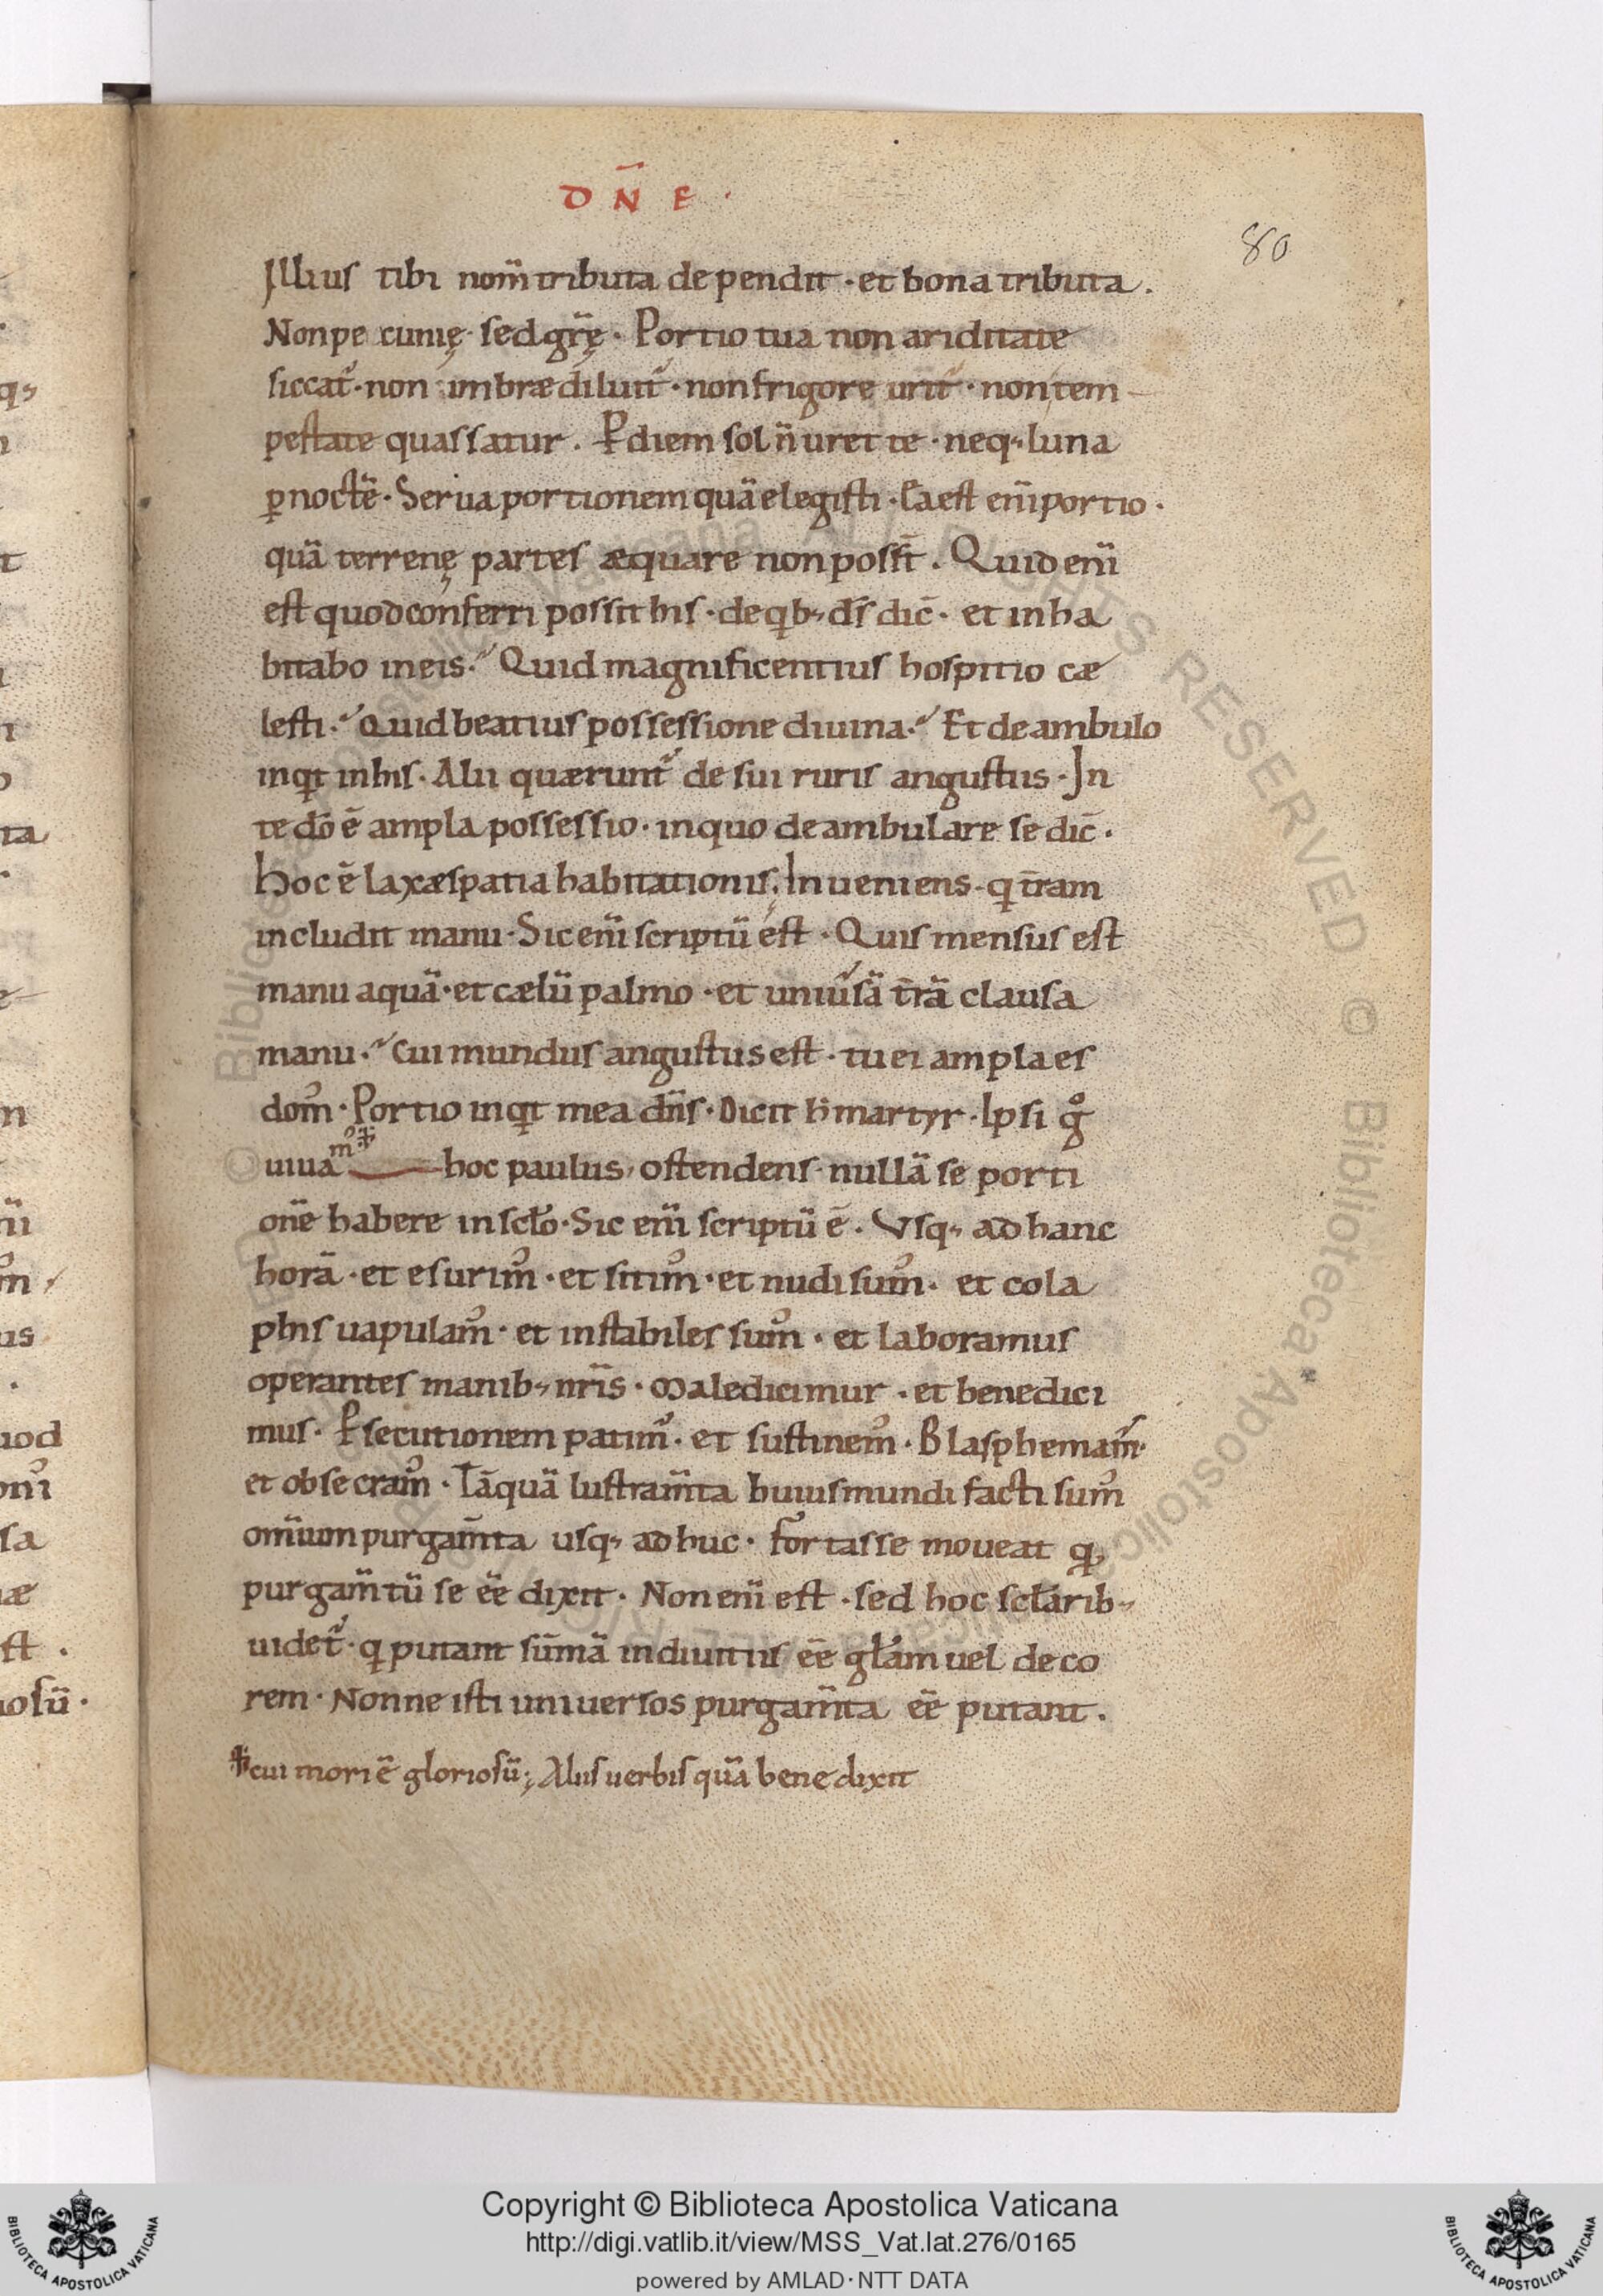 DN̄E·
80
Illius tibi nom̄ tributa dependit · et bona tributa .
Non pecunię · sed gr̄ę · Portio tua non ariditate
siccat᷑ · non imbræ diluit᷑ · non frigore urit᷑ · non tem
pestate quassatur . Ꝑ diem sol n̄ uret te · neq; luna
ꝑ noctē · Serua portionem quā elegisti · Ea est eni̅ portio ·
quā terrenę partes æquare non poss̅t . Quid eni̅
est quod conferri possit his · de qb; d̄s dic̄ · et inha
bitabo in eis · Quid magnificentius hospitio cæ
lesti · Quid beatius possessione diuina · Et deambulo
inqt in his · Alii quærunt᷑ de sui ruris angustiis · In
te dō ē ampla possessio · in quo deambulare se dic̄ ·
hoc ē laxæ spatia habitationis; Inueniens · q t̄ram
includit manu · Sic eni̅ scriptū est · Quis mensus est
manu aquā · et cælū palmo · et uniu͛sā t̄rā clausa
manu · Cui mundus angustus est · tu ei ampla es
dom᷒ · Portio inqt mea dn̄s · Dicit h̄ martyr · Ipsi gͦ
uiuam᷒ ‡ hoc paulus · ostendens nullā se porti
onē habere in sc̄lo · Sic eni̅ scriptū ē . Vsq; ad hanc
horā · et esurim᷒ · et sitim᷒ · et nudi sum᷒ · et cola
phis uapulam᷒ · et instabiles sum᷒ · et laboramus
operantes manib; nr̄is · Maledicimur · et benedici
mus · Ꝑsecutionem patim᷒ · et sustinem᷒ · Blasphemam᷑ ·
et obsecram᷒ · Tāquā lustram̄ta huius mundi facti sum᷒
om̄ium purgam̄ta usq; adhuc · fortasse moueat qͥ
purgam̄tū se ēe dixit · Non eni̅ est · sed hoc sc̄larib;
uidet᷑ · q putant sūmā in diuitiis ēe gl̄am uel deco
rem · Nonne isti uniuersos purgam̄ta ēe putant .
‡ cui mori ē gloriosū; Aliis uerbis quā bene dixit
q;
t
ta
n
us
uod
sa
æ
st .
osū ·
Copyright © Biblioteca Apostolica Vaticana
http://digi.vatlib.it/view/MSS_Vat.lat.276/0165
powered by AMLAD·NTT DATA
BIBLIOTECA APOSTOLICA VATICANA
BIBLIOTECA APOSTOLICA VATICANA